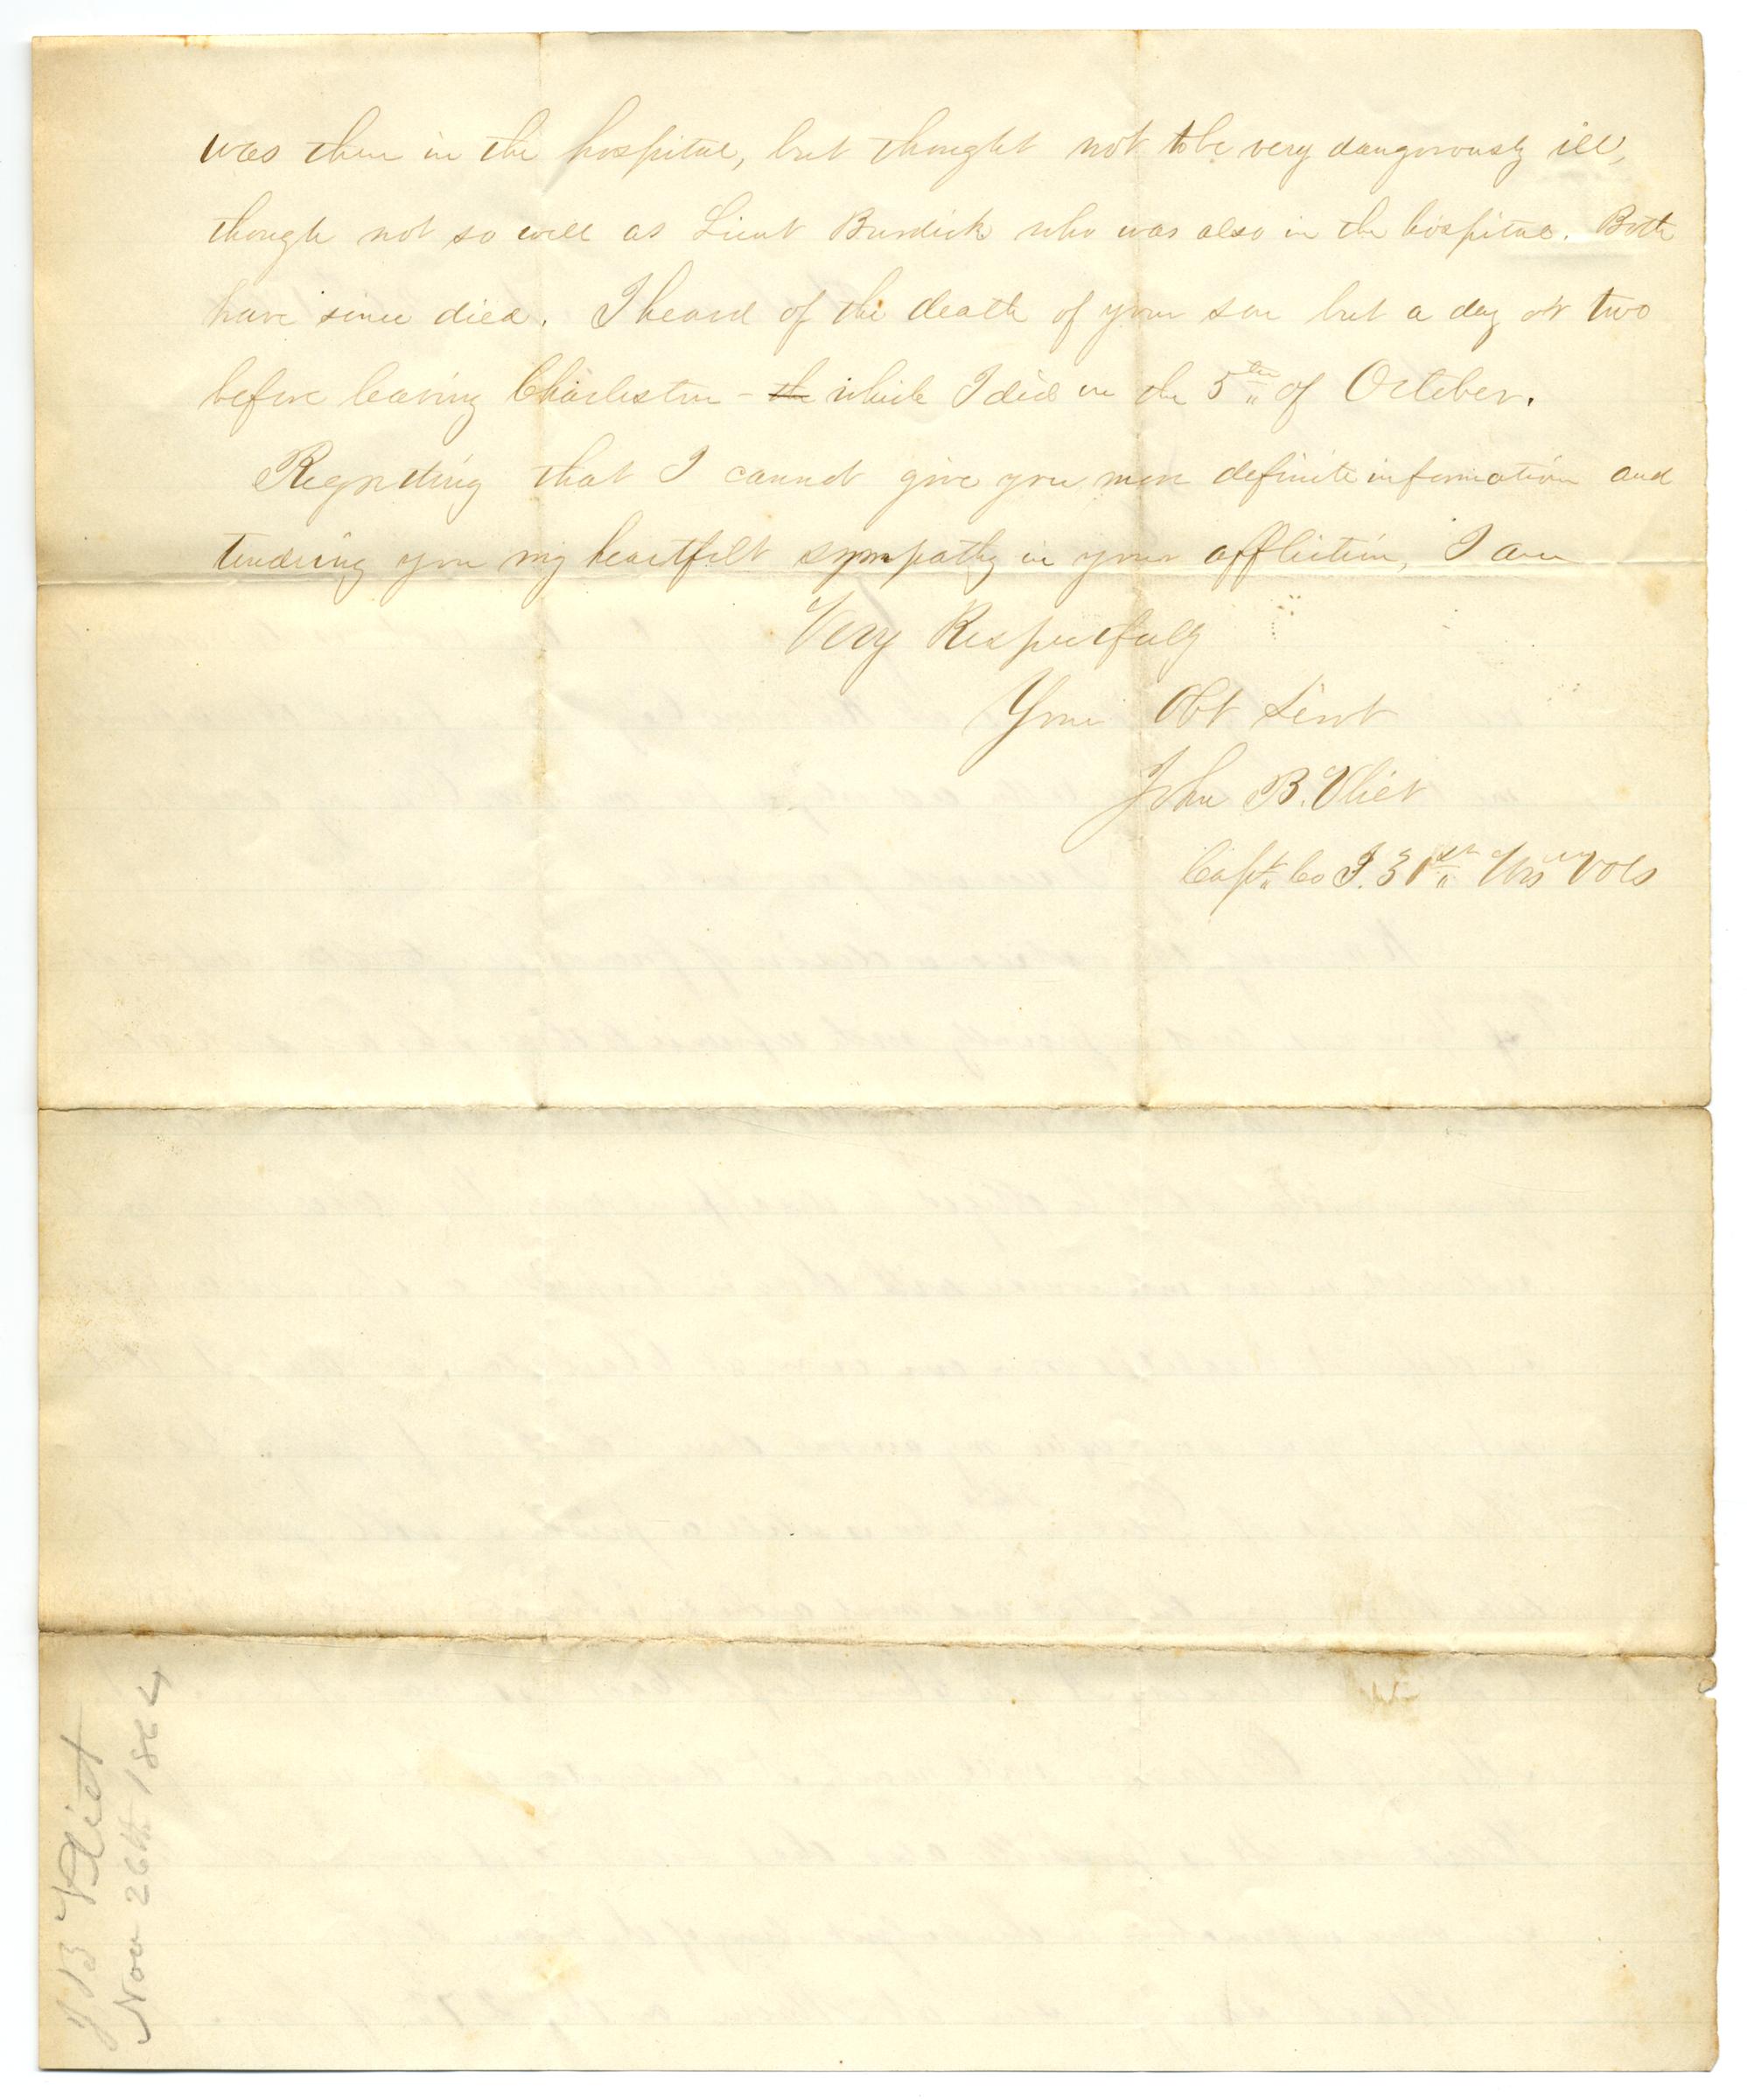 was then in the hospital, but thought not to be very dangerously ill,
though not so well as Lieut Burdick who was also in the hospital. Both
have since died. I heard of the death of your son but a day or two
before leaving Charleston - the which I did on the 5th of October.
Regretting that I cannot give you more definite information and
tendering you my heartfelt sympathy in your affliction, I am
Very Respectfully
Your Obt Servt
John B. Vliet
Capt. Co I. 31st Wis Vols
J B Vliet
Nov 26th 1864